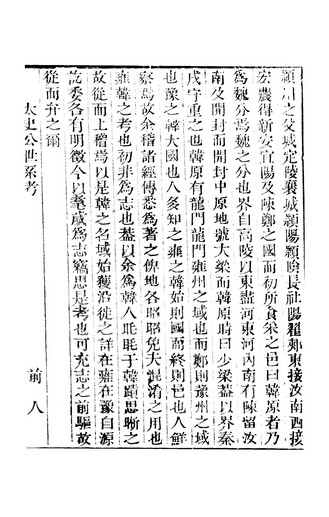 潁川之父城定陵襄城潁陽潁陰長社陽翟郟東接汝南西接
宏農得新安宜陽及陳鄭之國而初所食釆之邑曰韓原者乃
為魏分焉魏之分也界自高陵以東盡河東河內南有陳留汝
南及開封而開封中原地號大梁而韓原時曰少梁葢以界秦
戎字重之也韓原有龍門龍門雍州之域也而鄭則豫州之域
也豫之韓大國也人多知之雍之韓始則國而終則邑也人鮮
察焉故余稽諸經傳悉為著之俾地各昭昭免夫混淆之用也
雍韓之考也初非為志也葢以余為韓人眂眂于韓蹟思晰之
故從而上稽焉以是韓之名域始獲沿徙之詳在雍在豫自源
訖委各有明徵今以耄歲為志竊思是考也可充志之前驅故
從而弁之爾
太史公世系考
前人